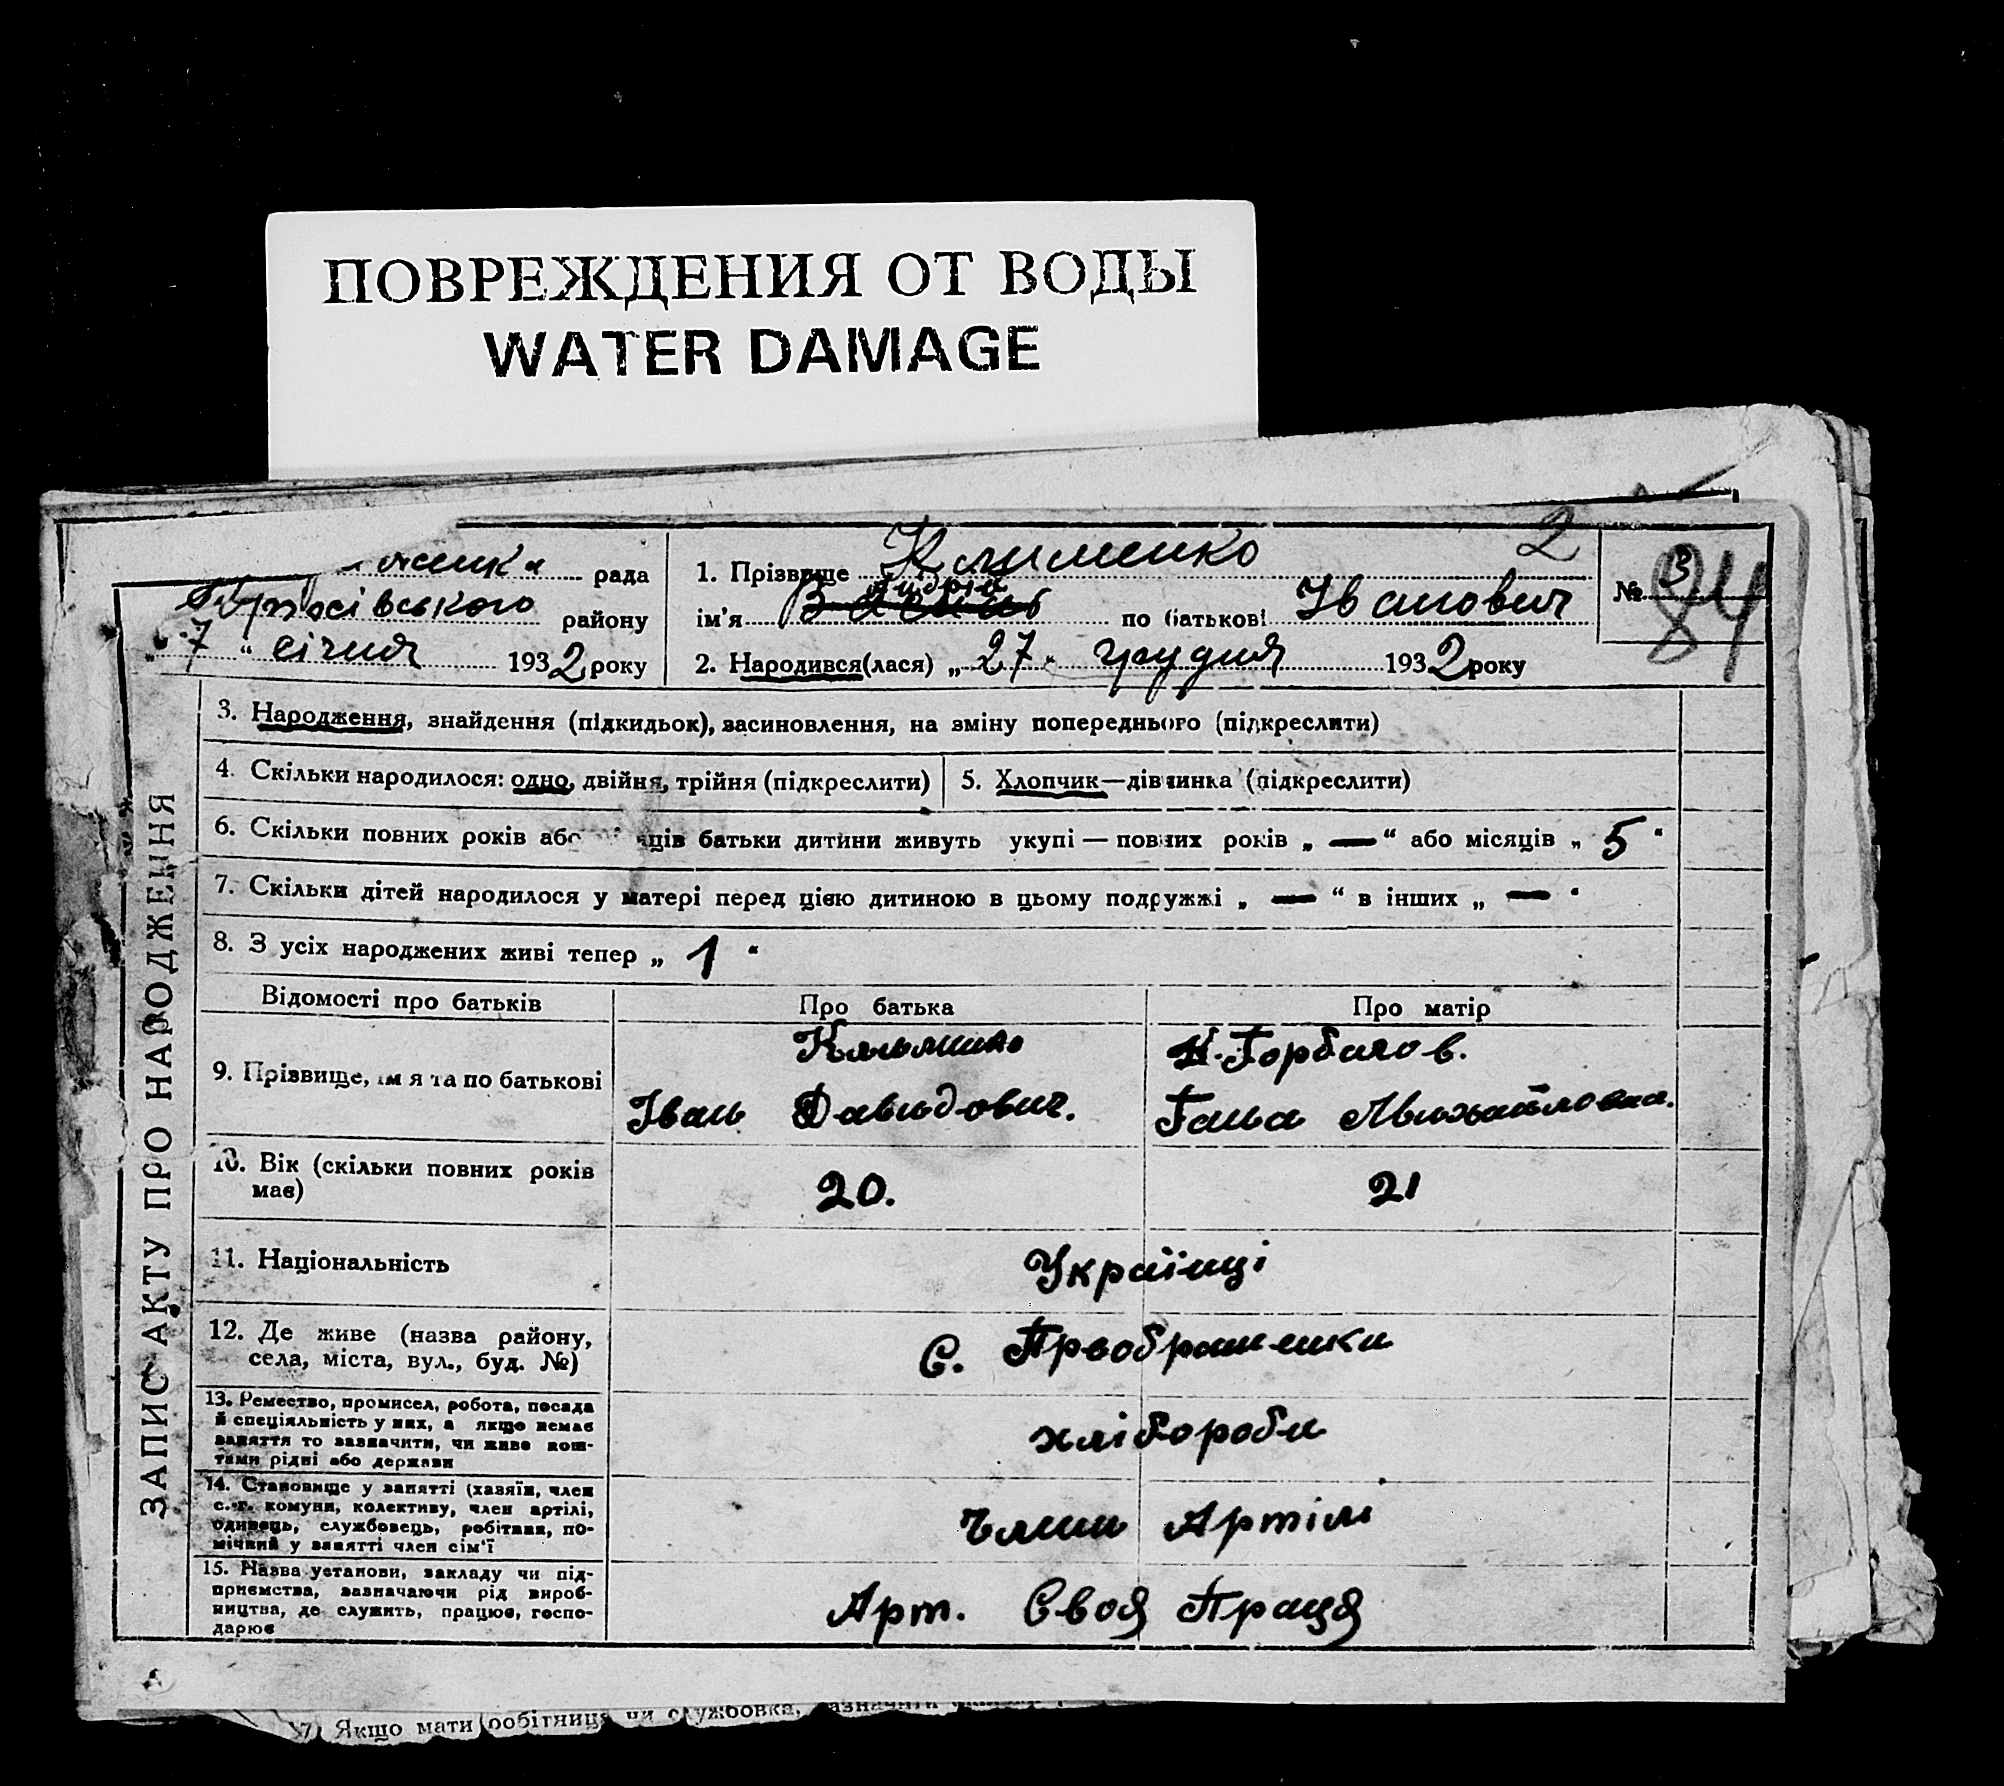 ПОВРЕЖДЕНИЯ ОТ ВОДЫ
WATER DAMAGE
рада
району
7 “ січня 1932 року
1. Прізвище Клименко 2
ім'я Андрій по батькові Іванович
2. Народився(лася) „ 27 “ грудня 1932 року
№ 3
84
ЗАПИС АКТУ ПРО НАРОДЖЕННЯ
3. Народження, знайдення (підкидьок), засиновлення, на зміну попереднього (підкреслити)
4. Скільки народилося: одно, двійня, трійня (підкреслити)
5. Хлопчик—дівчинка (підкреслити)
6. Скільки повних років або батьки дитини живуть укупі — повних років „ — “ або місяців „ 5 “
7. Скільки дітей народилося у матері перед цією дитиною в цьому подружжі „ — “ в інших „ — “
8. З усіх народжених живі тепер „ 1 “
Відомості про батьків Про батька Про матір
9. Прізвище, ім я та по батькові
Іван Давидович.
Ганна Михайловна.
10. Вік (скільки повних років має)
20.
21
11. Національність
Українці
12. Де живе (назва району,
села, міста, вул., буд. №)
С.
13. Ремество, промисел, робота, посада
й спеціяльність у них, а якщо немає
заняття то зазначити, чи живе кош-
тами рідні або держави
хлібороби
14. Становище у занятті (хазяїн, член
с.-г. комуни, колективу, член артілі,
одинець, службовець, робітник, по-
мічний у занятті член сім'ї
Члени Артілі
15. Назва установи, закладу чи під-
приємства, зазначаючи рід вироб-
ництва, де служить, працює, госпо-
дарює
Арт. Своя Праця
Якщо мати робітниця чи службовка,